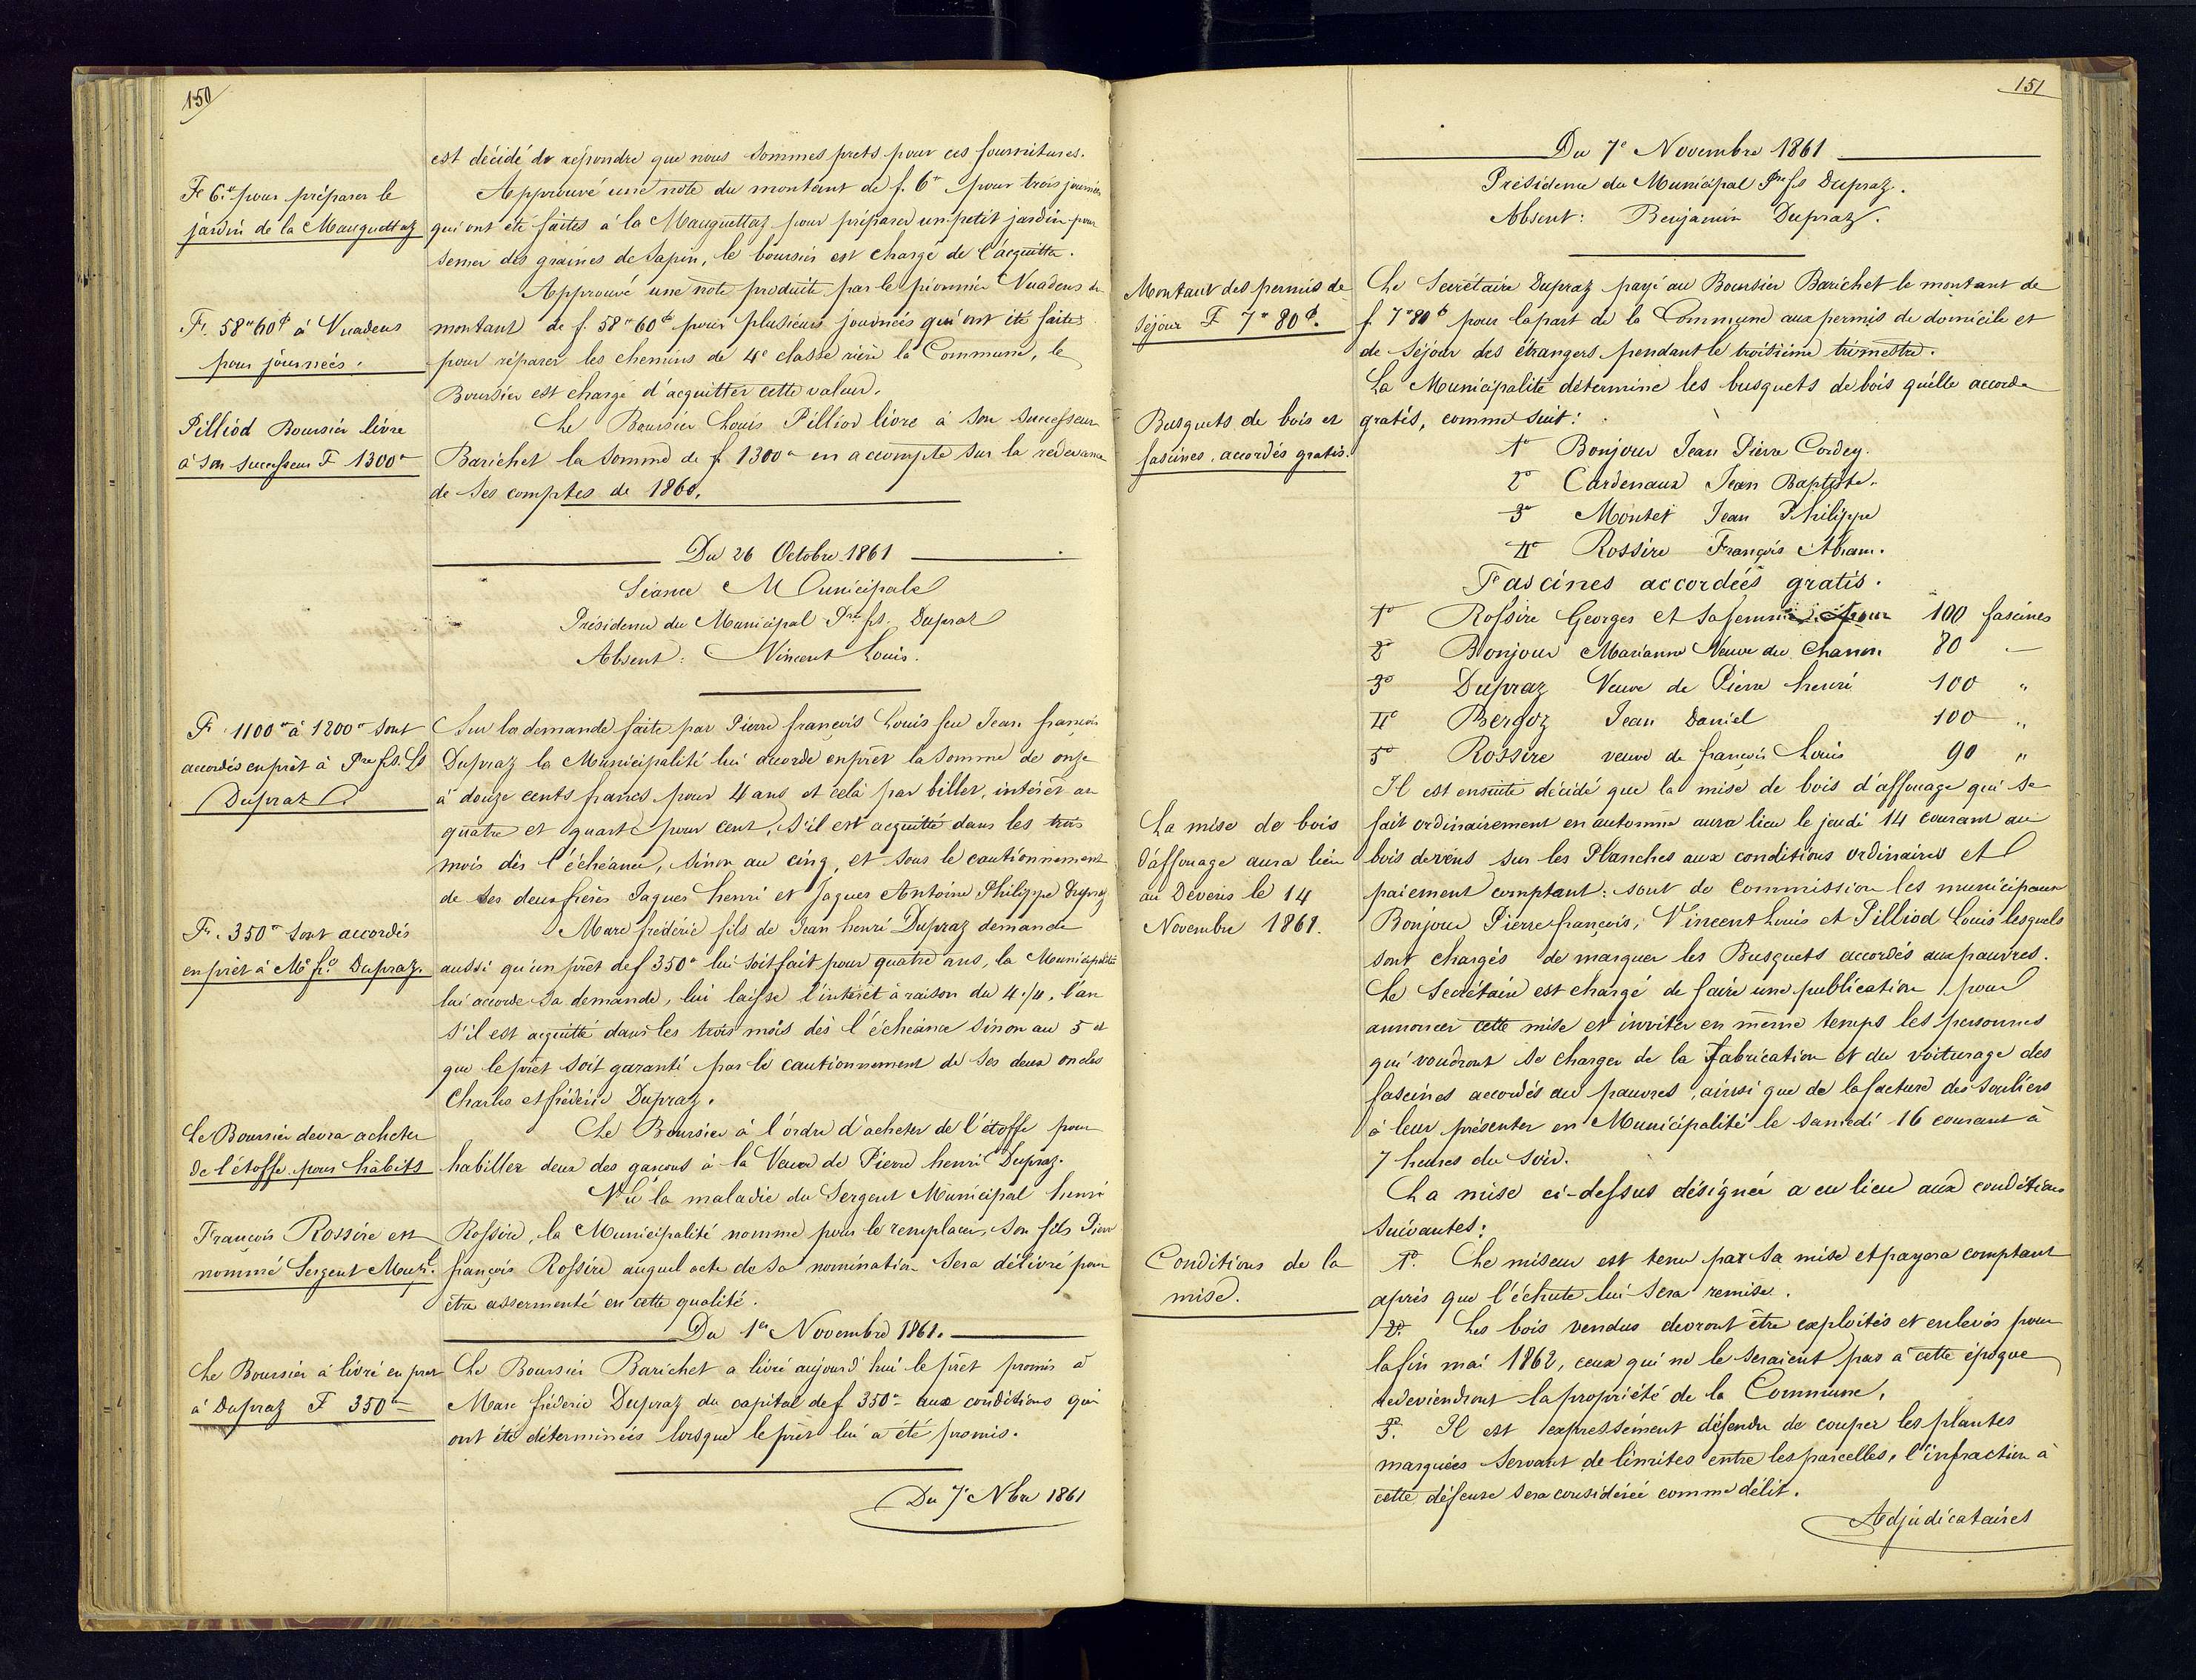 150
est décidé de répondre que nous sommes prets pour ces fournitures.
Fr 6.- pour préparer le
jardin de la Mauguettaz
Approuvé une note du montant de f. 6.- pour trois journées
qui ont été faites à la Mauguettaz pour préparer un petit jardin pour
semer des graines de Sapin, le boursier est chargé de l'acquitter.
Fr. 58"60 à Vuadens
pour journées.
Approuvé une note produite par le pionnier Vuadens du
montant de f. 58"60 pour plusieurs journées qui ont été faites
pour réparer les chemins de 4e classe rière la Commune, le
Boursier est chargé d'acquitter cette valeur.
Pilliod Boursier livre
à son successeur F 1300"
Le Boursier Louis Pilliod livre à son successeur
Barichet la somme de f. 1300" en accompte sur la redevance
de ses comptes de 1860.
Du 26 Octobre 1861
Séance Municipale
Présidence du Municipal Pre fs. Dupraz
Absent: Vincent Louis.
F. 1100" à 1200" sont
accordés en prêt à Pre fs. Ls
Dupraz
Sur la demande faite par Pierre françois Louis feu Jean françois
Dupraz la Municipalité lui accorde en prêt la somme de onze
à douze cents francs pour 4 ans et cela par billet, intérêt au
quatre et quart pour cent, s'il est acquitté dans les trois
mois dès l'échéance, sinon au cinq, et sous le cautionnement
de ses deux frères Jaques henri et Jaques Antoine Philippe Dupraz
Fr. 350" sont accordés
en prêt à Mc fc. Dupraz.
Marc frédéric fils de Jean henri Dupraz demande
aussi qu'un prêt de f 350" lui soit fait pour quatre ans, la Municipalité
lui accorde sa demande, lui laisse l'intérêt à raison du 4 1/4, l'an
s'il est acquitté dans les trois mois dès l'échéance sinon au 5 et
que le prêt soit garanti par le cautionnement de ses deux oncles
Charles et frédéric Dupraz.
Le Boursier devra acheter
de l'étoffe pour habits
Le Boursier à l'ordre d'acheter de l'étoffe pour
habiller deux des garçons à la Veuve de Pierre henri Dupraz.
François Rossire est
nommé Sergent Munl.
Vu la maladie du Sergent Municipal henri
Rossire, la Municipalité nomme pour le remplacer, son fils Pierre
françois Rossire auquel acte de sa nomination sera délivré pour
être assermenté en cette qualité.
Du 1er Novembre 1861.
Le Boursier à livré en pret
à Dupraz F 350"
Le Boursier Barichet a livré aujourd'hui le prêt promis à
Marc fréderic Dupraz du capital de f 350" aux conditions qui
ont été déterminées lorsque le prêt lui a été promis.
Du 7e Nbre 1861
151
Du 7e Novembre 1861
Présidence du Municipal Pre fs Dupraz.
Absent: Benjamin Dupraz.
Montant des permis de
séjour F 7" 80.
Le Secrétaire Dupraz paye au Boursier Barichet le montant de
f. 7"80 pour la part de la Commune aux permis de domicile et
de séjour des étrangers pendant le troisième trimestre.
Busquets de bois et
fascines accordés gratis.
La Municipalité détermine les busquets de bois qu'elle accorde
gratis, comme suit:
1o Bonjour Jean Pierre Cordey.
2o Cardenaux Jean Baptiste.
3o Montet Jean Philippe
4o Rossire François Abram.
Fascines accordées gratis.
1o Rossire Georges et sa femme 100 fascines
2o Bonjour Marianne Veuve du Chanon 80 —
3o Dupraz Veuve de Pierre henri 100 "
4o Bergoz Jean Daniel 100 "
5o Rossire veuve de françois Louis 90 "
La mise de bois
d'affouage aura lieu
au Devens le 14
Novembre 1861.
Il est ensuite décidé que la mise de bois d'affouage qui se
fait ordinairement en automne aura lieu le jeudi 14 courant au
bois devens sur les Planches aux conditions ordinaires et
paiement comptant: sont de Commission les municipaux
Bonjour Pierre françois, Vincent Louis et Pilliod Louis lesquels
sont chargés de marquer les Busquets accordés aux pauvres.
Le Secrétaire est chargé de faire une publication pour
annoncer cette mise et inviter en même temps les personnes
qui voudront se charger de la fabrication et du voiturage des
fascines accordés au pauvres, ainsi que de la facture des souliers
à leur présenter en Municipalité le samedi 16 courant à
7 heures du soir.
La mise ci-dessus désignée a eu lieu aux conditions
suivantes:
Conditions de la
mise.
1o. Le miseur est tenu par sa mise et payera comptant
après que l'échute lui sera remise.
2o. Les bois vendus devront être exploités et enlevés pour
la fin mai 1862, ceux qui ne le seraient pas à cette époque
redeviendront la propriété de la Commune.
3o. Il est expressément défendu de couper les plantes
marquées servant de limites entre les parcelles, l'infraction à
cette défense sera considérée comme délit.
Adjudicataires